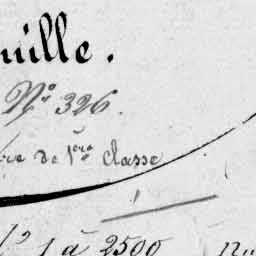 uille.
Nº 326.
re de 1ère classe
1 à 2500